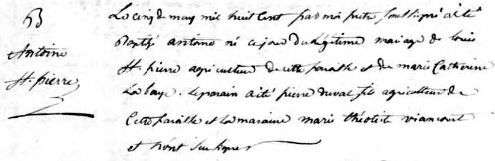 B
Antoine
St. pierre
Le cinq de may mil huit Cent par moi pretre, soussigné a été
Baptisé antoine né ce jour du légitime mariage de louis
St. pierre agriculteur de cette paroisse et de marie Catherine
Labaye. Le parain a été pierre duval fils agriculteur de
Cette paroisse et la maraine marie théotist viancour
et n'ont su signer